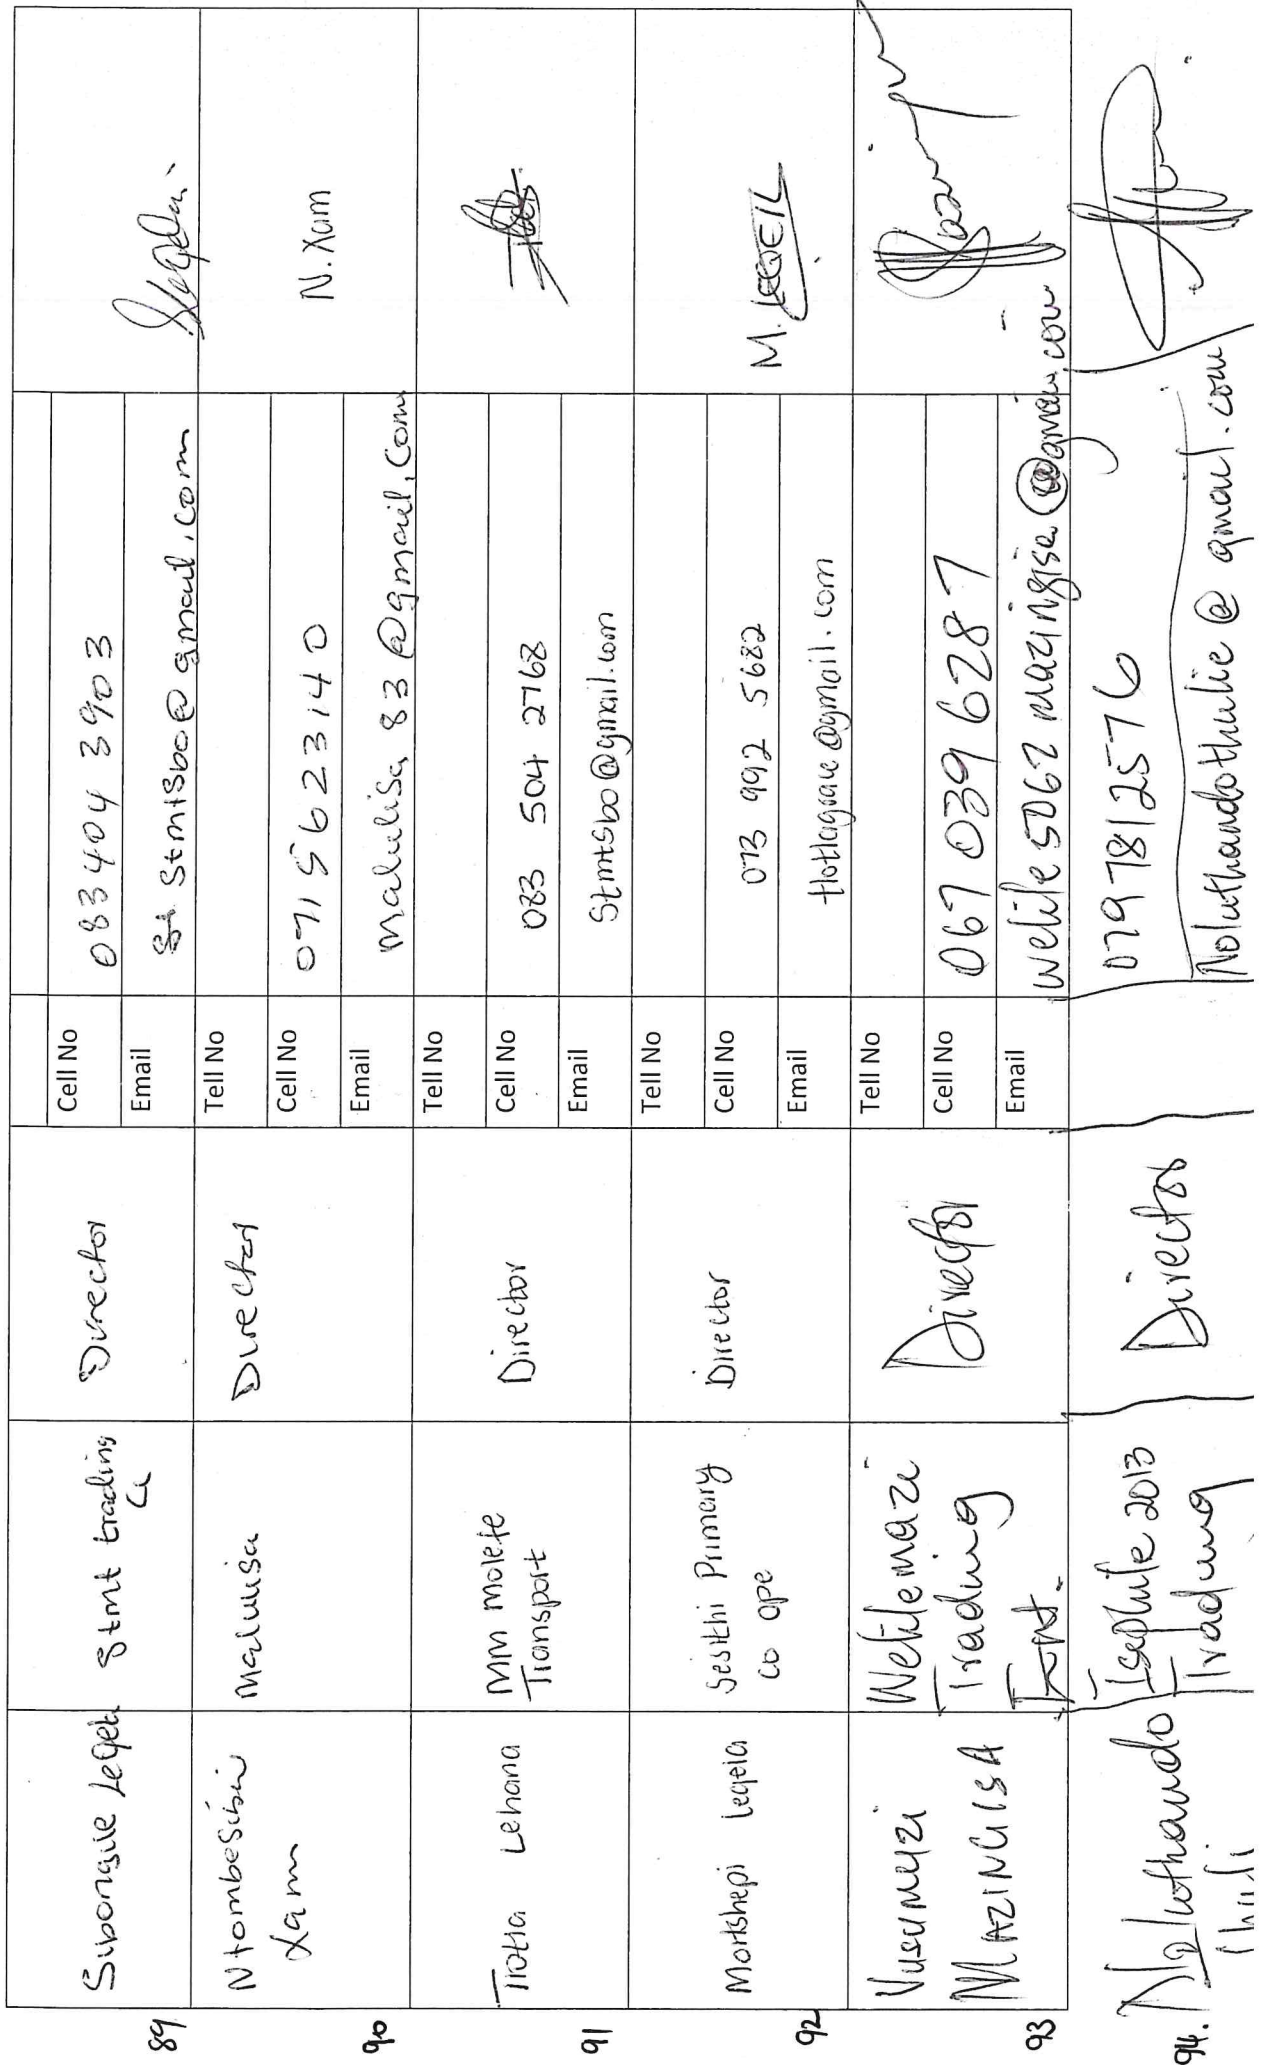 89
Sibongile Leqela
Stmt trading
cc
Director
Cell No
083 404 3903
Email
Stmtsbo@gmail.com
90
Ntombesibini
Xam
Maluisa
Director
Tell No
Cell No
071 5623140
Email
Malulisa83@gmail.com
N.Xam
91
Tlotla Lehana
MM Molefe
Transport
Director
Tell No
Cell No
083 504 2768
Email
Stmtsbo@gmail.com
92
Leqela
Sesithi Primary
co ope
Director
Tell No
Cell No
073 992 5682
Email
M.
93
Vusumuzi
MAZINGISA
Welilemazi
Trading
Director
Tell No
Cell No
067 039 6287
Email
welile5062mazingisa@gmail.com
94.
Noluthando
Thuli
Isephile 2013
Trading
Director
0797812576
Noluthandothulie@gmail.com